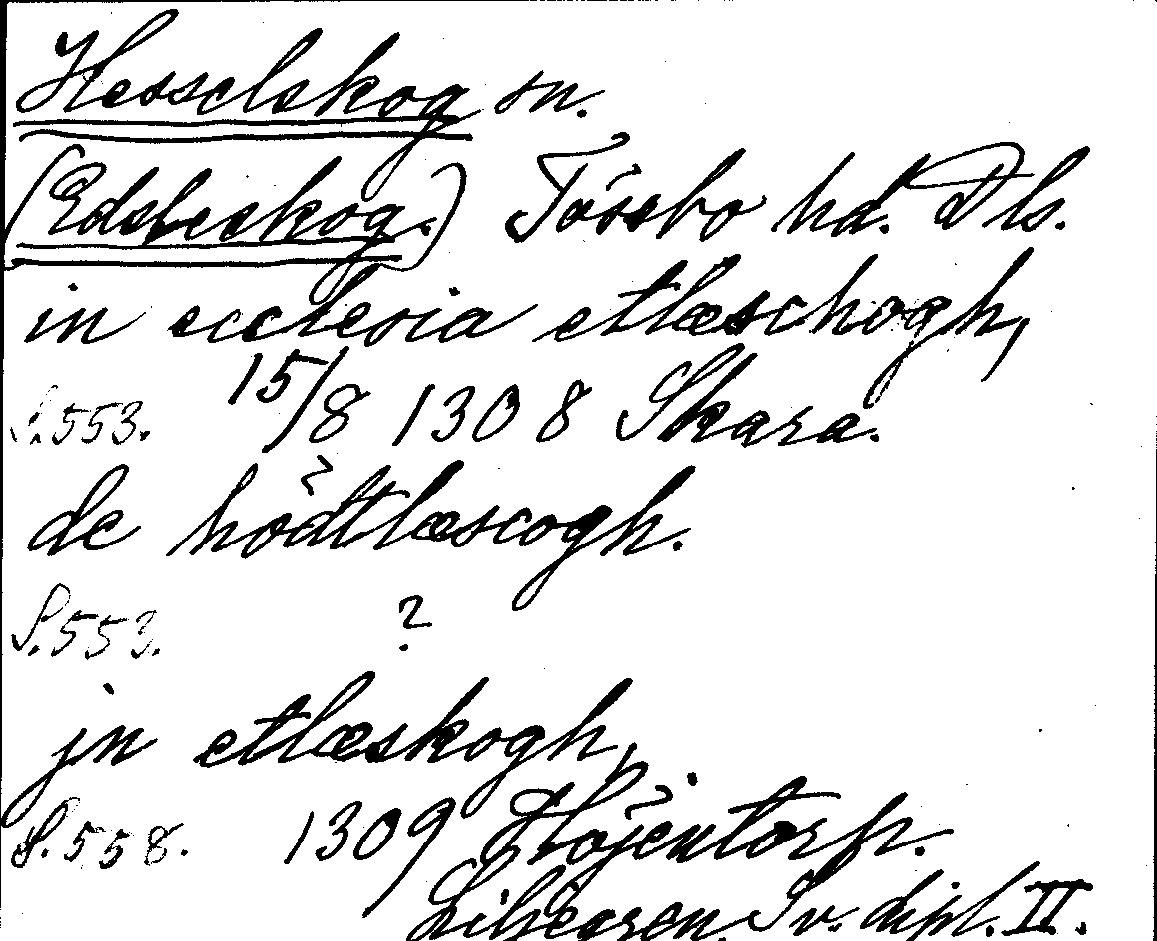 Hesselskog sn.
(Edsleskog.) Tössbo hd. Dls.
in ecclesia etlæschogh,
S.553. 15/8 1308 Skara.
de hödtlæscogh.
S.553. ?
jn etlæskogh,
S.558. 1309 Höjentorp.
Liljegren. Sv. dipl. II.